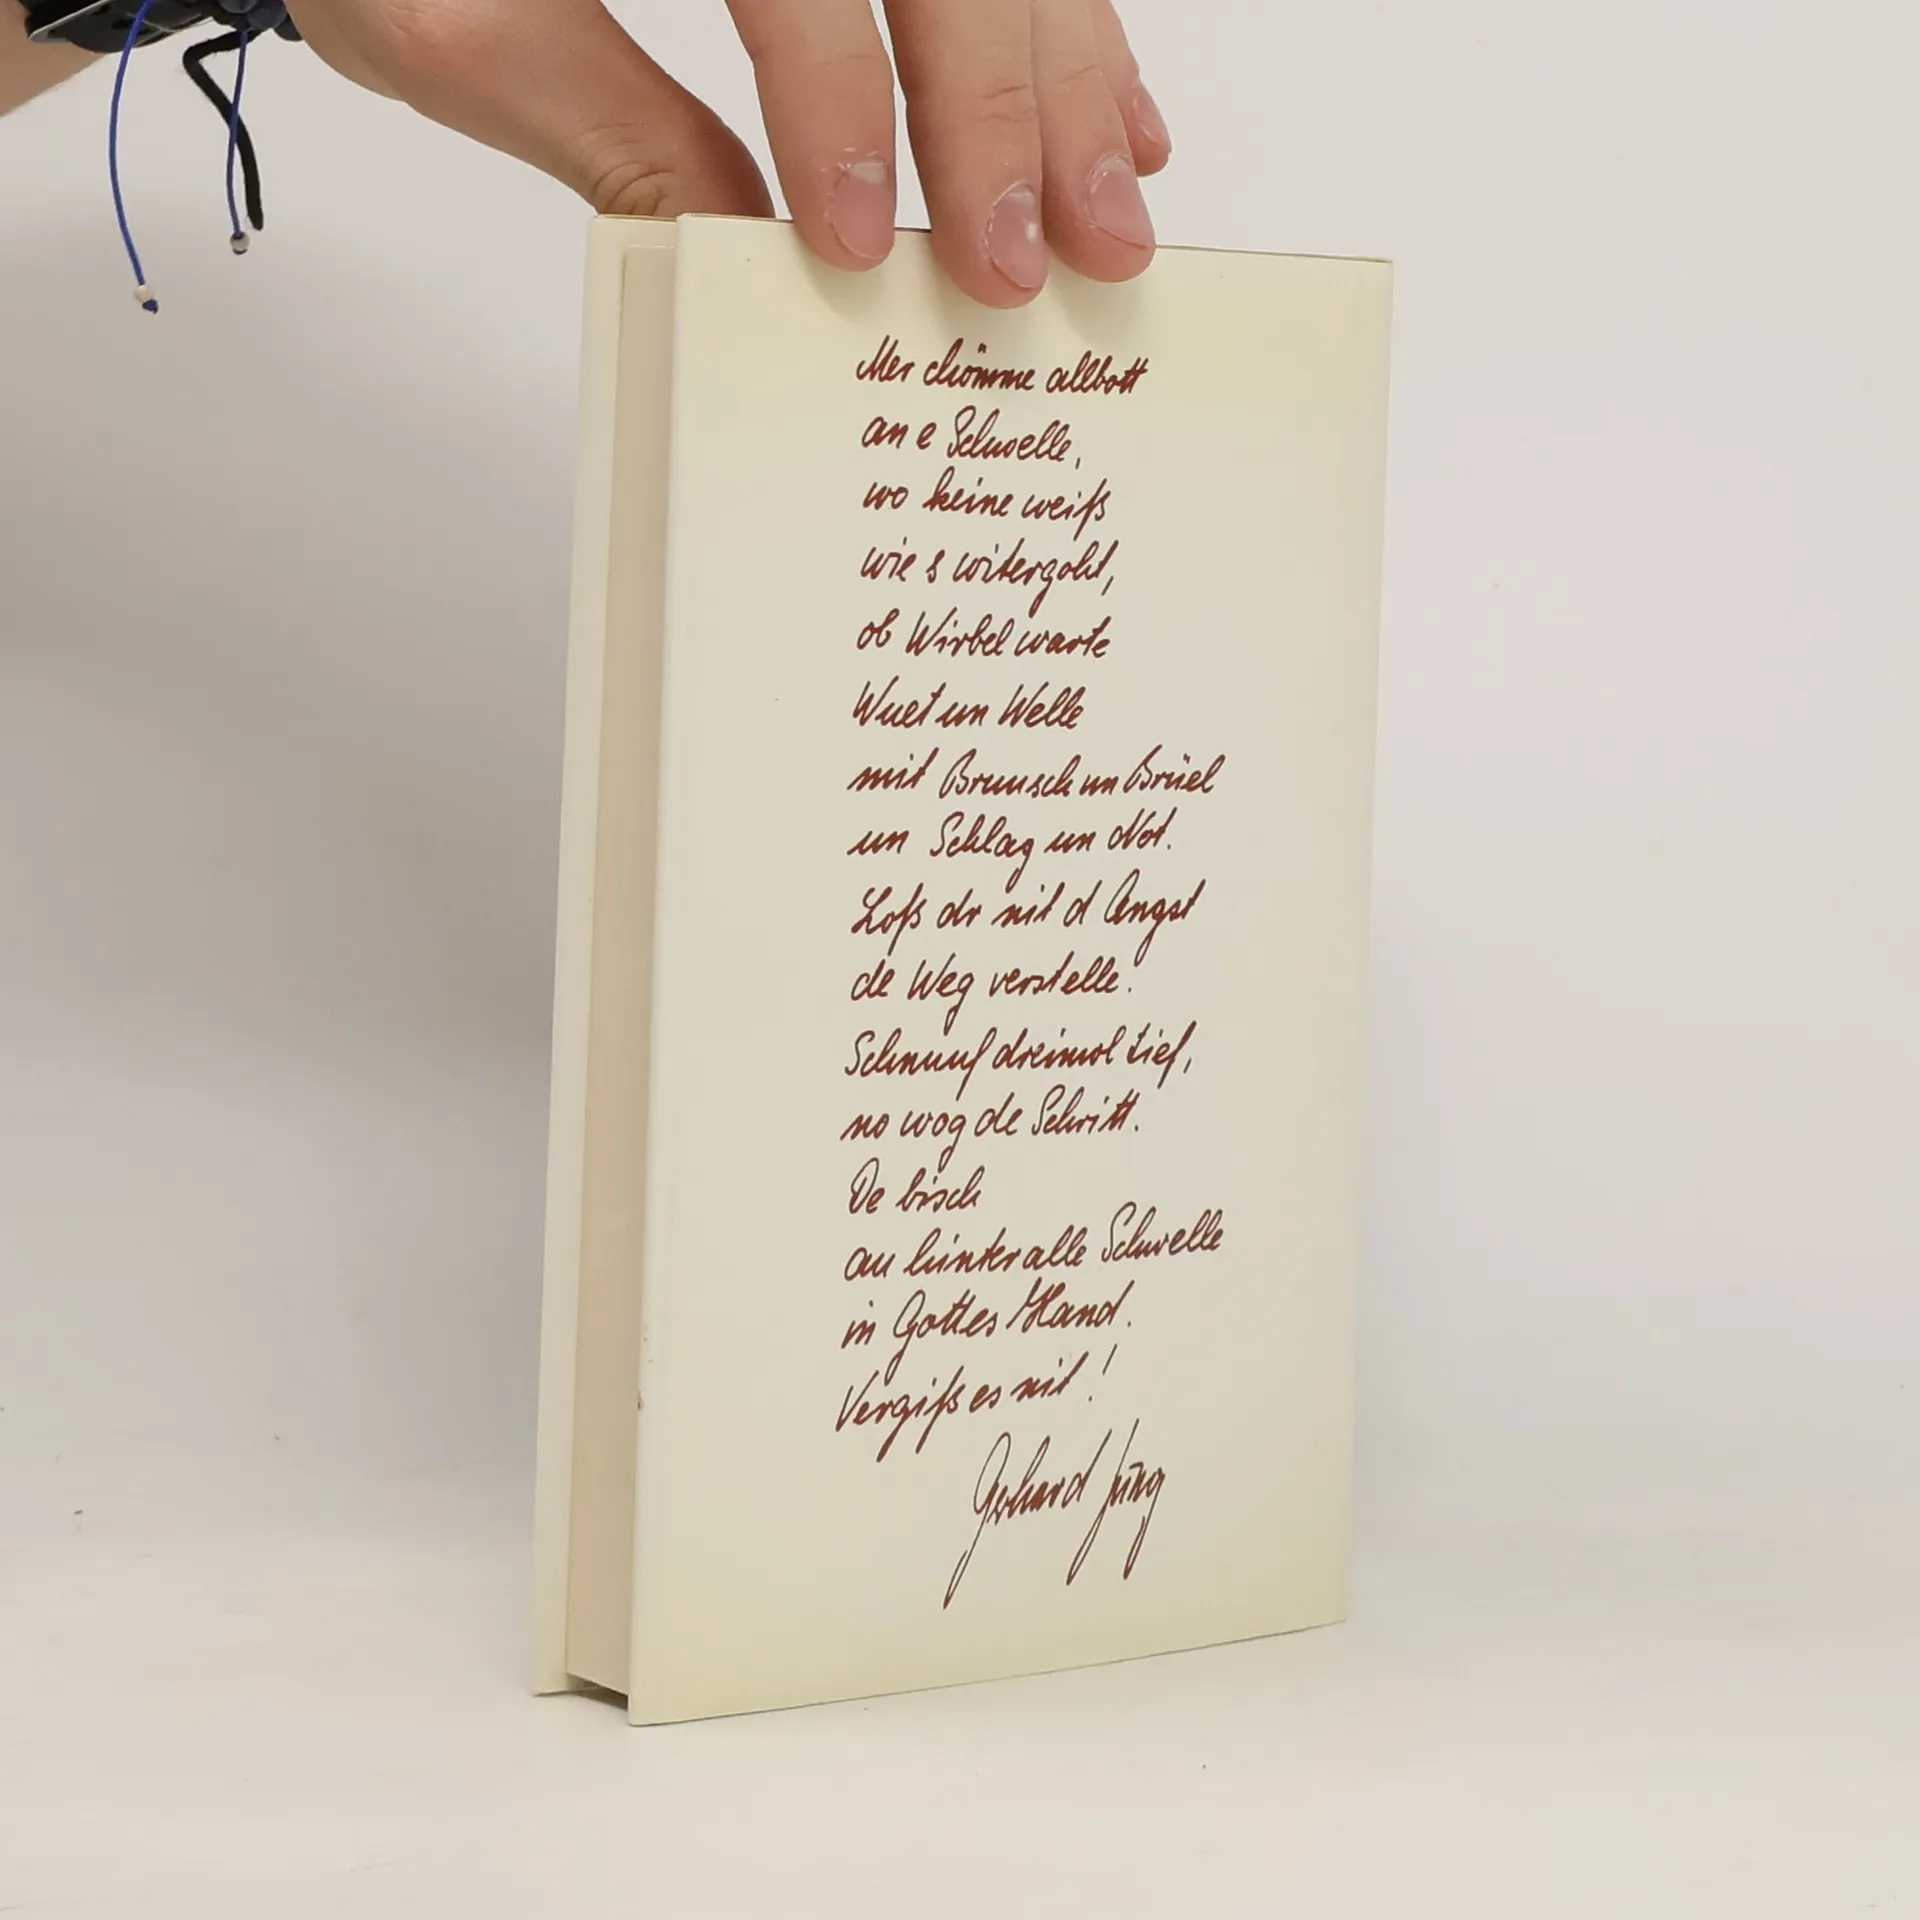 Mer chömme allbott
an e Schwelle,
wo keine weiß
wie s witergoht,
ob Wirbel warte
Wuet un Welle
mit Bruusch un Brüel
un Schlag un Not.
Loß dr nit d Angst
de Weg verstelle.
Schnuuf dreimol tief,
no wog de Schritt.
De bisch
au hinter alle Schwelle
in Gottes Hand.
Vergiß es nit!
Gerhard Jung